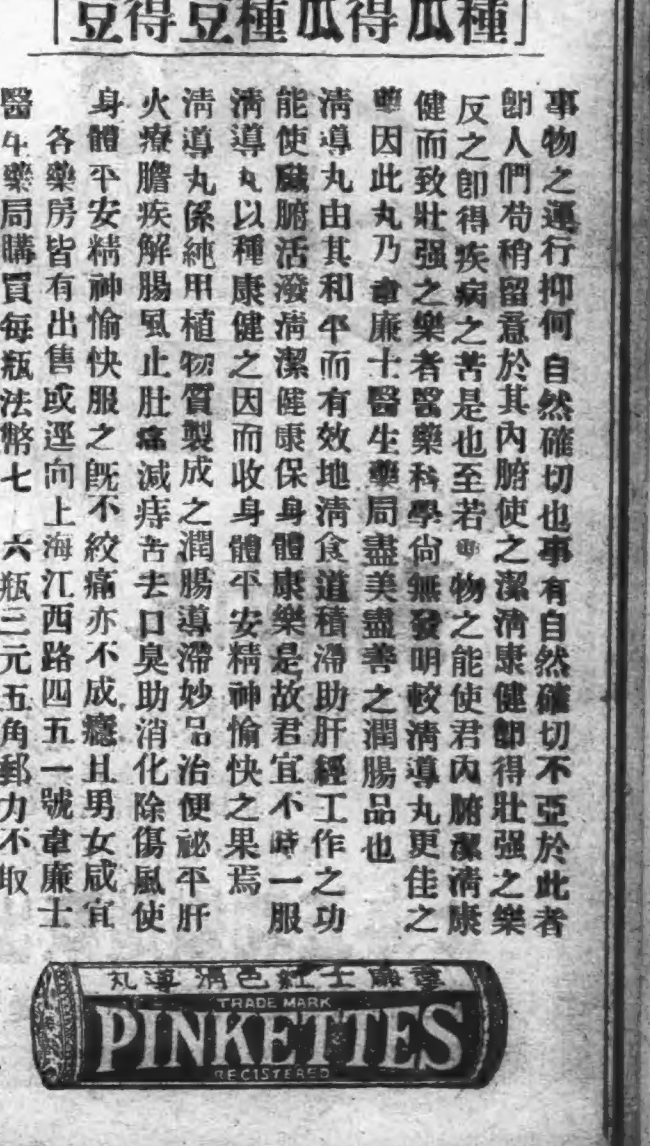 種瓜得瓜種豆得豆
事物之運行抑何自然確切也事有自然確切不亞於此者
卽人們苟稍留意於其內腑使之潔淸康健卽得壯强之樂
反之卽得疾病之苦是也至若物之能使君內腑潔淸康
健而致壯强之樂者醫藥科學尙無發明較淸導丸更佳之
藥因此丸乃韋廉士醫生藥局盡美盡善之潤腸品也
淸導丸由其和平而有效地淸食道積滯助肝經工作之功
能使臟腑活潑淸潔健康保身體康樂是故君宜不時一服
淸導丸以種康健之因而收身體平安精神愉快之果焉
淸導丸係純用植物質製成之潤腸導滯妙品治便祕平肝
火療膽疾解腸風止肚痛減痔苦去口臭助消化除傷風使
身體平安精神愉快服之旣不絞痛亦不成癮且男女咸宜
各藥房皆有出售或逕向上海江西路四五一號韋廉士
醫生藥局購買每瓶法幣七六瓶三元五角郵力不取
韋廉士紅色淸導丸
TRADE MARK
PINKETTES
REGISTERED